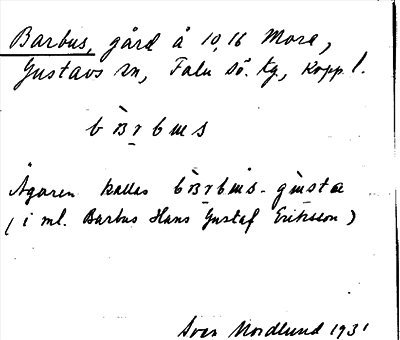 Barbus, gård å 10,16 Mora,
Gustavs sn, Falu sö. tg, Kopp. l.
Ägaren kallas
(i ml. Barbus Hans Gustaf Eriksson)
Sven Nordlund 1931